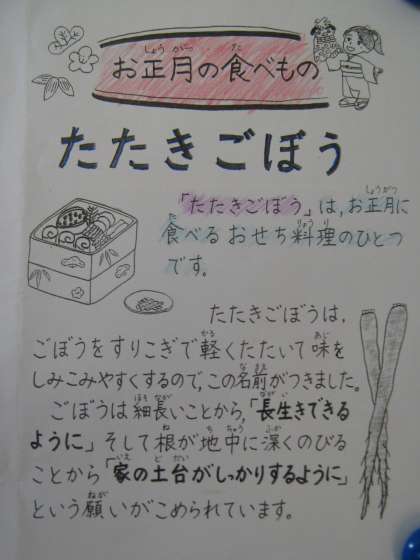 お正月の食べもの
たたきごぼう
「たたきごぼう」は,お正月に
食べるおせち料理のひとつ
です。
たたきごぼうは,
ごぼうをすりこぎで軽くたたいて味を
しみこみやすくするので,この名前がつきました。
ごぼうは細長いことから,「長生きできる
ように」そして根が地中に深くのびる
ことから「家の土台がしっかりするように」
という願いがこめられています。